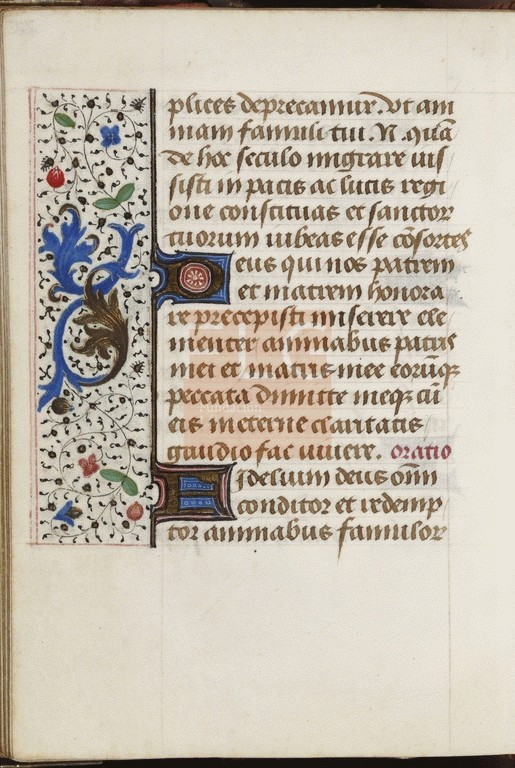 plices deprecamur. Vt am
mam famuli tui. N. quā
de hoc seculo migrare uis
sisti in pacis ac lucis regi
one constituas et sanctor
tuorum iubeas esse cōsortes
Deus qui nos patrem
et matrem honora
re precepisti miserere cle
menter animabus patris
mei et matris mee eorūq;
peccata dimitte meq; cū
eis in eterne claritatis
gaudio fac uiuere. oratio
Fidelium deus om̄
conditor et redemp
tor animabus famulor
Fundación